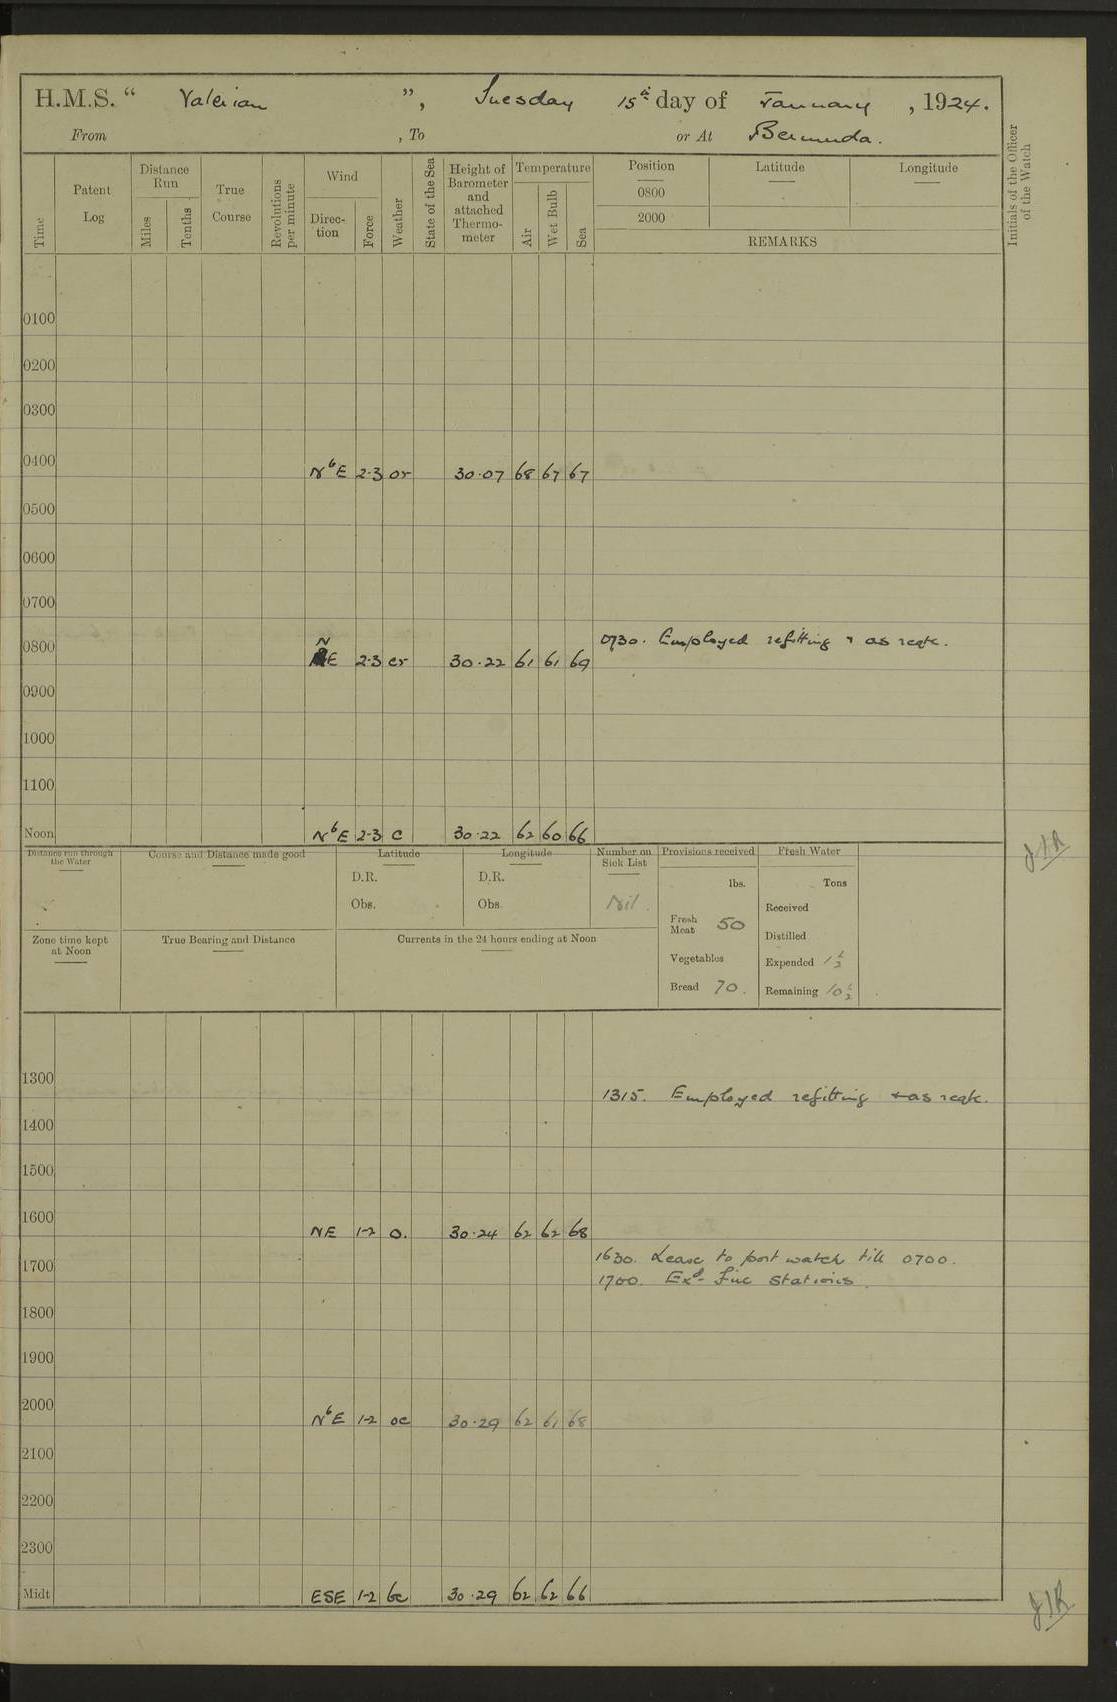 H.M.S. “ Valerian ”, Tuesday 15th day of January , 1924.
From , To or At Bermuda.
Time
Patent Log
Distance Run
Miles
Tenths
True Course
Revolutions per minute
Wind
Direction
Force
Weather
State of the Sea
Height of Barometer and attached Thermometer
Temperature
Air
Wet Bulb
Sea
Position
0800
2000
Latitude
Longitude
REMARKS
Initials of the Officer of the Watch
0100
0200
0300
0400 NbE 2·3 or 30·07 68 67 67
0500
0600
0700
0730. Employed refitting & as reqte.
0800 N E 2·3 cr 30·22 61 61 69
0900
1000
1100
Noon NbE 2-3 c 30·22 62 60 66
Distance run through the Water
Course and Distance made good
Latitude
D.R.
Obs.
Longitude
D.R.
Obs.
Number on Sick List
Nil.
Provisions received
lbs.
Fresh Meat 50
Vegetables
Bread 70.
Fresh Water
Tons
Received
Distilled
Expended 1½
Remaining 10½
Zone time kept at Noon
True Bearing and Distance
Currents in the 24 hours ending at Noon
1300
1315. Employed refitting & as reqte.
1400
1500
1600 NE 1-2 o. 30·24 62 62 68
1630. Leave to port watch till 0700.
1700
1700. Exd. Fire Stations.
1800
1900
2000 NbE 1-2 oc 30·29 62 61 68
2100
2200
2300
Midt ESE 1-2 bc 30·29 62 62 66